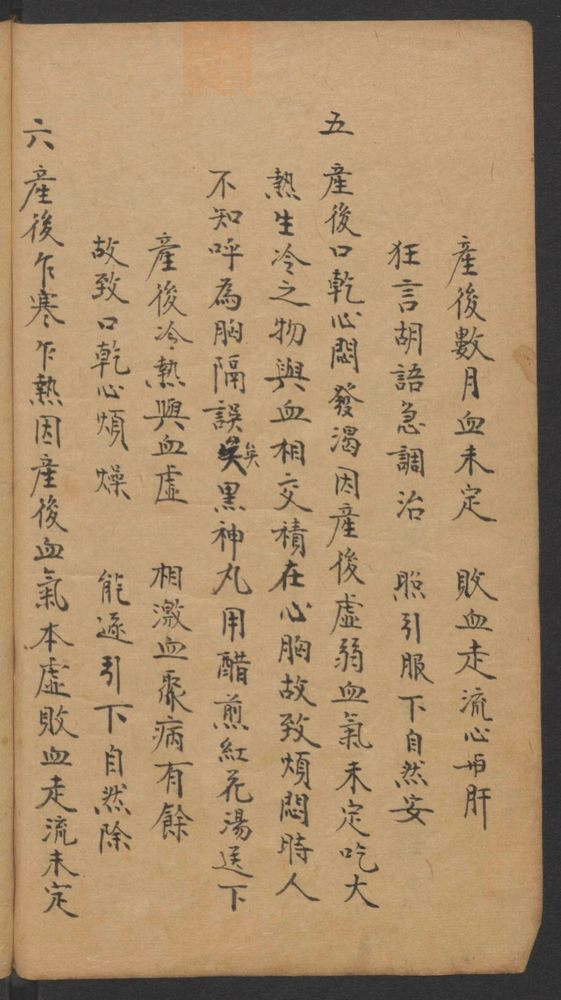 產後數月血未定　敗血走流心與肝
狂言胡語急調治　照引服下自然安
五　產後口乾心悶發渴因產後虛弱血氣未定吃大
熱生冷之物與血相交積在心胸故致煩悶時人
不知呼為胸隔誤矣矣黑神丸用醋煎紅花湯送下
產後冷熱興血虛　相激血聚病有餘
故致口乾心煩燥　能遜引下自然除
六產後乍寒乍熱因產後血氣本虛敗血走流未定